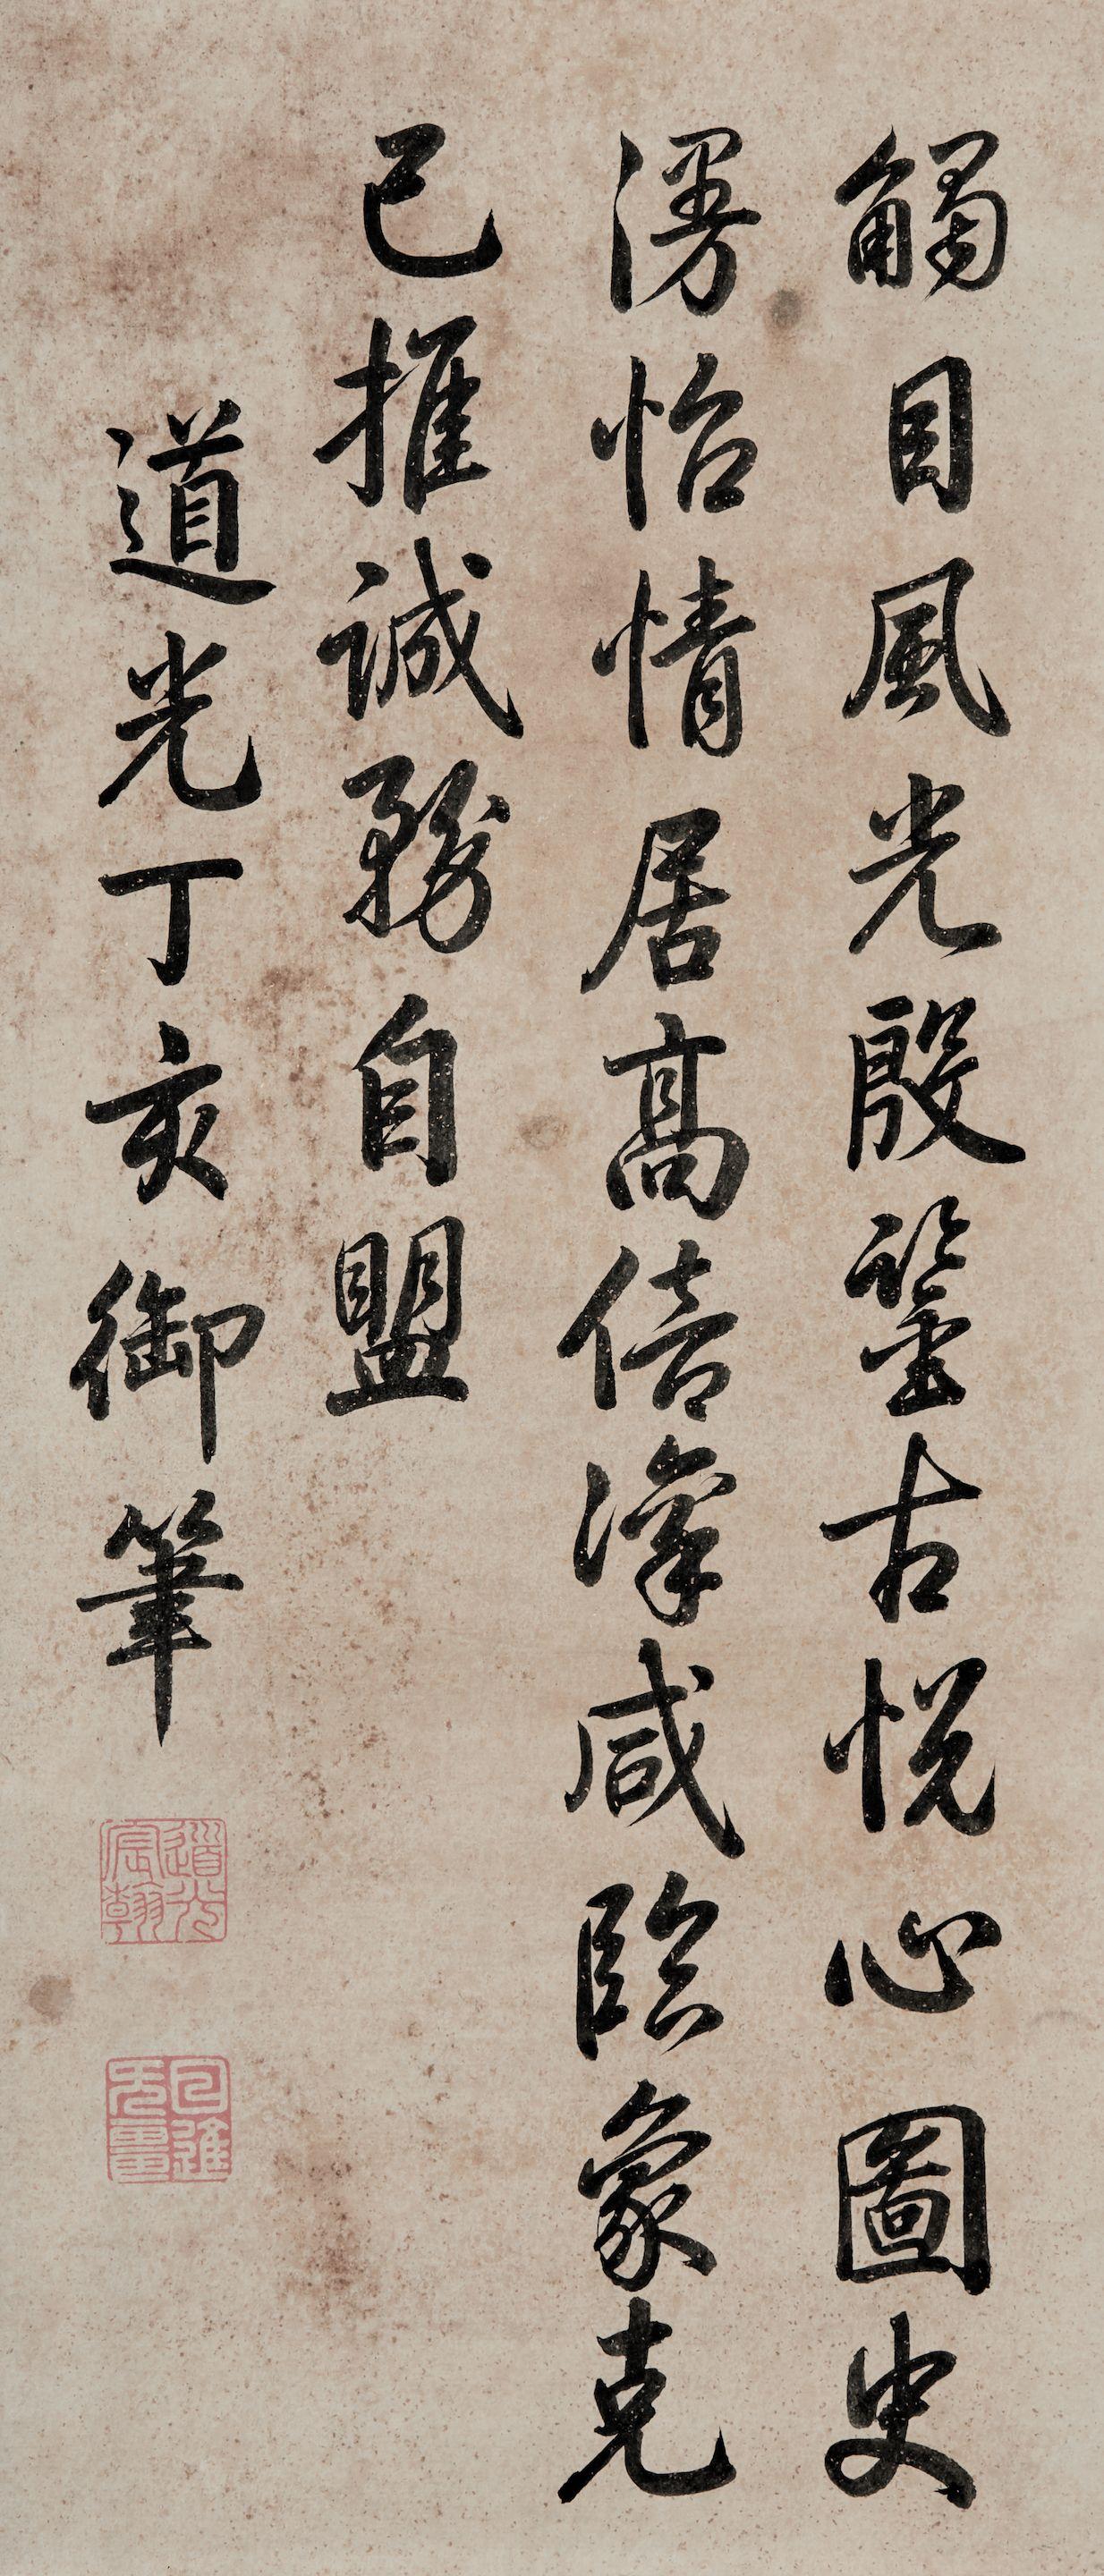 觸目風光殷鑒古悅心圖史
漫怡情居高倍深咸臨象克
己推誠務自盟
道光丁亥御筆
道光宸翰
日進无畺